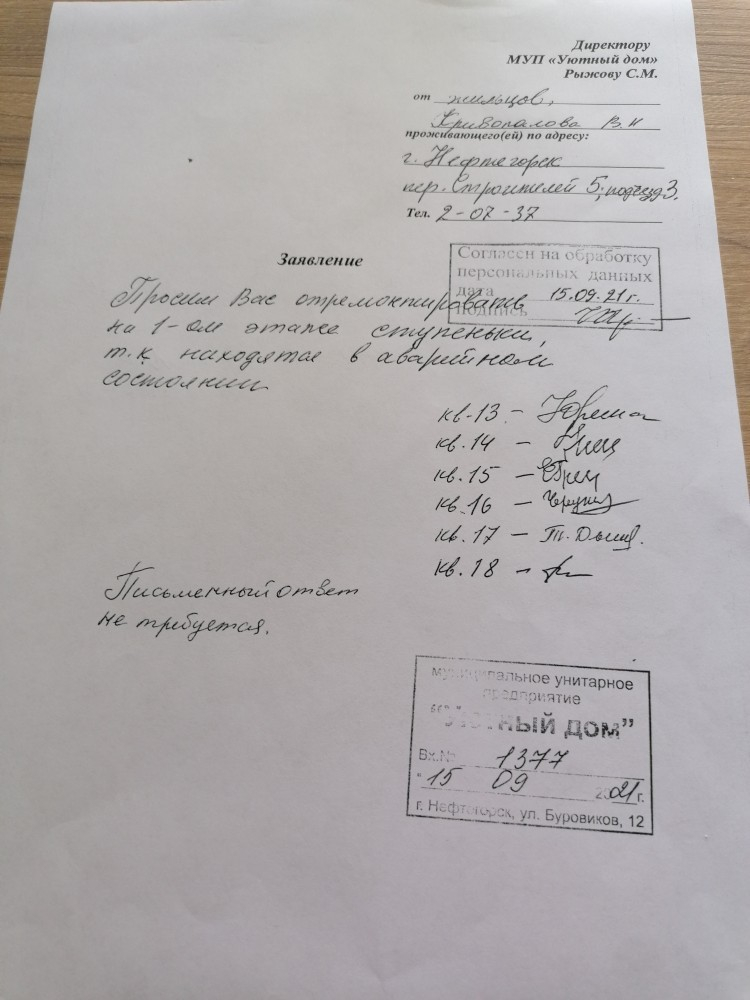 Директору
МУП «Уютный дом»
Рыжову С.М.
от жильцов,
Кривопалова В.Н
проживающего(ей) по адресу:
г. Нефтегорск
пер. Строителей 5; подъезд 3.
Тел. 2-07-37
Заявление
Согласен на обработку
персональных данных
дата 15.09.21г.
подпись
Просим Вас отремонтировать
на 1-ом этаже ступеньки,
т.к находятся в аварийном
состоянии
кв.13 -
кв.14 -
кв.15 -
кв.16 -
кв.17 - Т.
кв.18 -
Письменный ответ
не требуется.
муниципальное унитарное
предприятие
"Уютный дом"
Вх.№ 1377
"15 09 2021г.
г. Нефтегорск, ул. Буровиков, 12